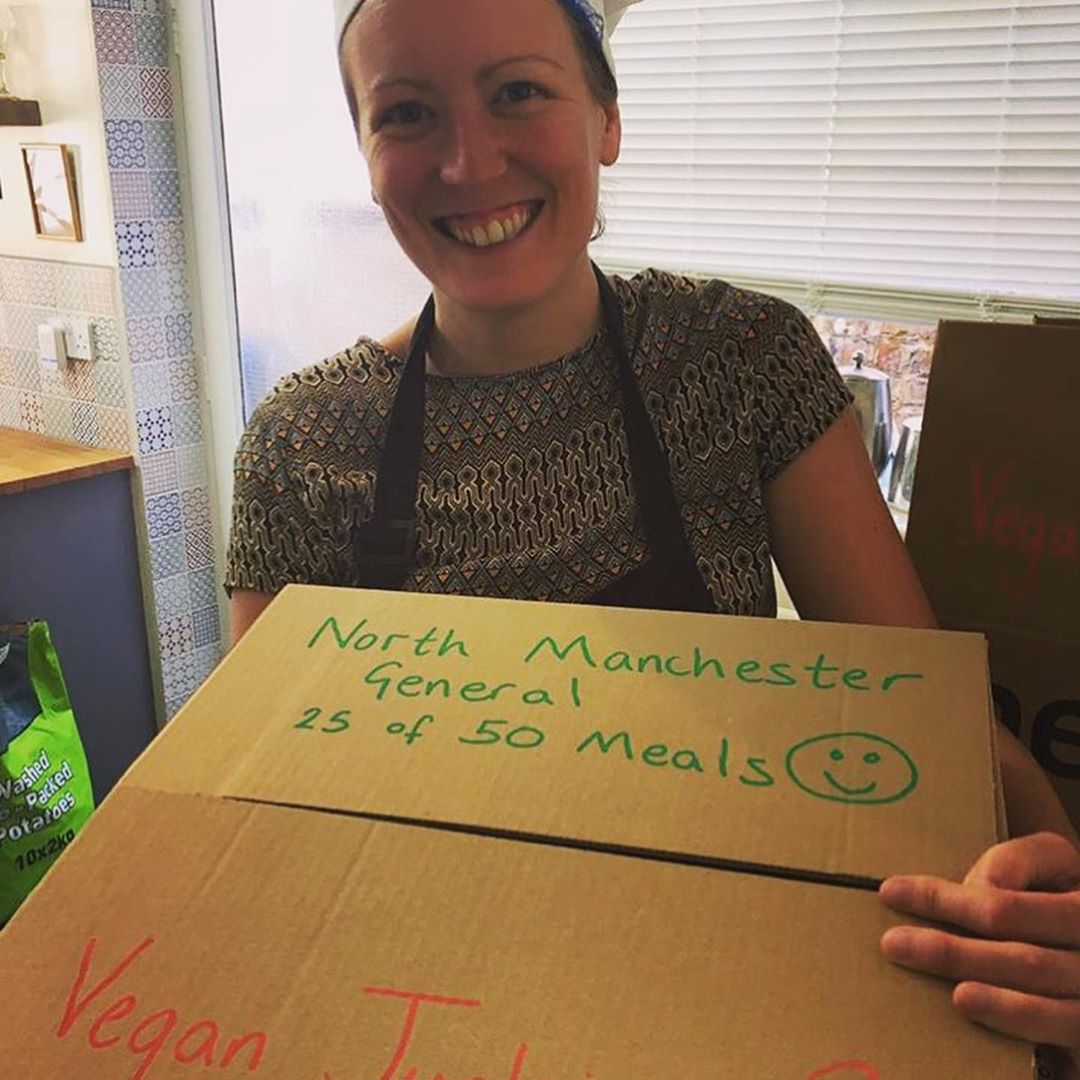 North Manchester
General
25 of 50 Meals
Vegan
Vega
Washed
Packed
Potatoes
10x2kg